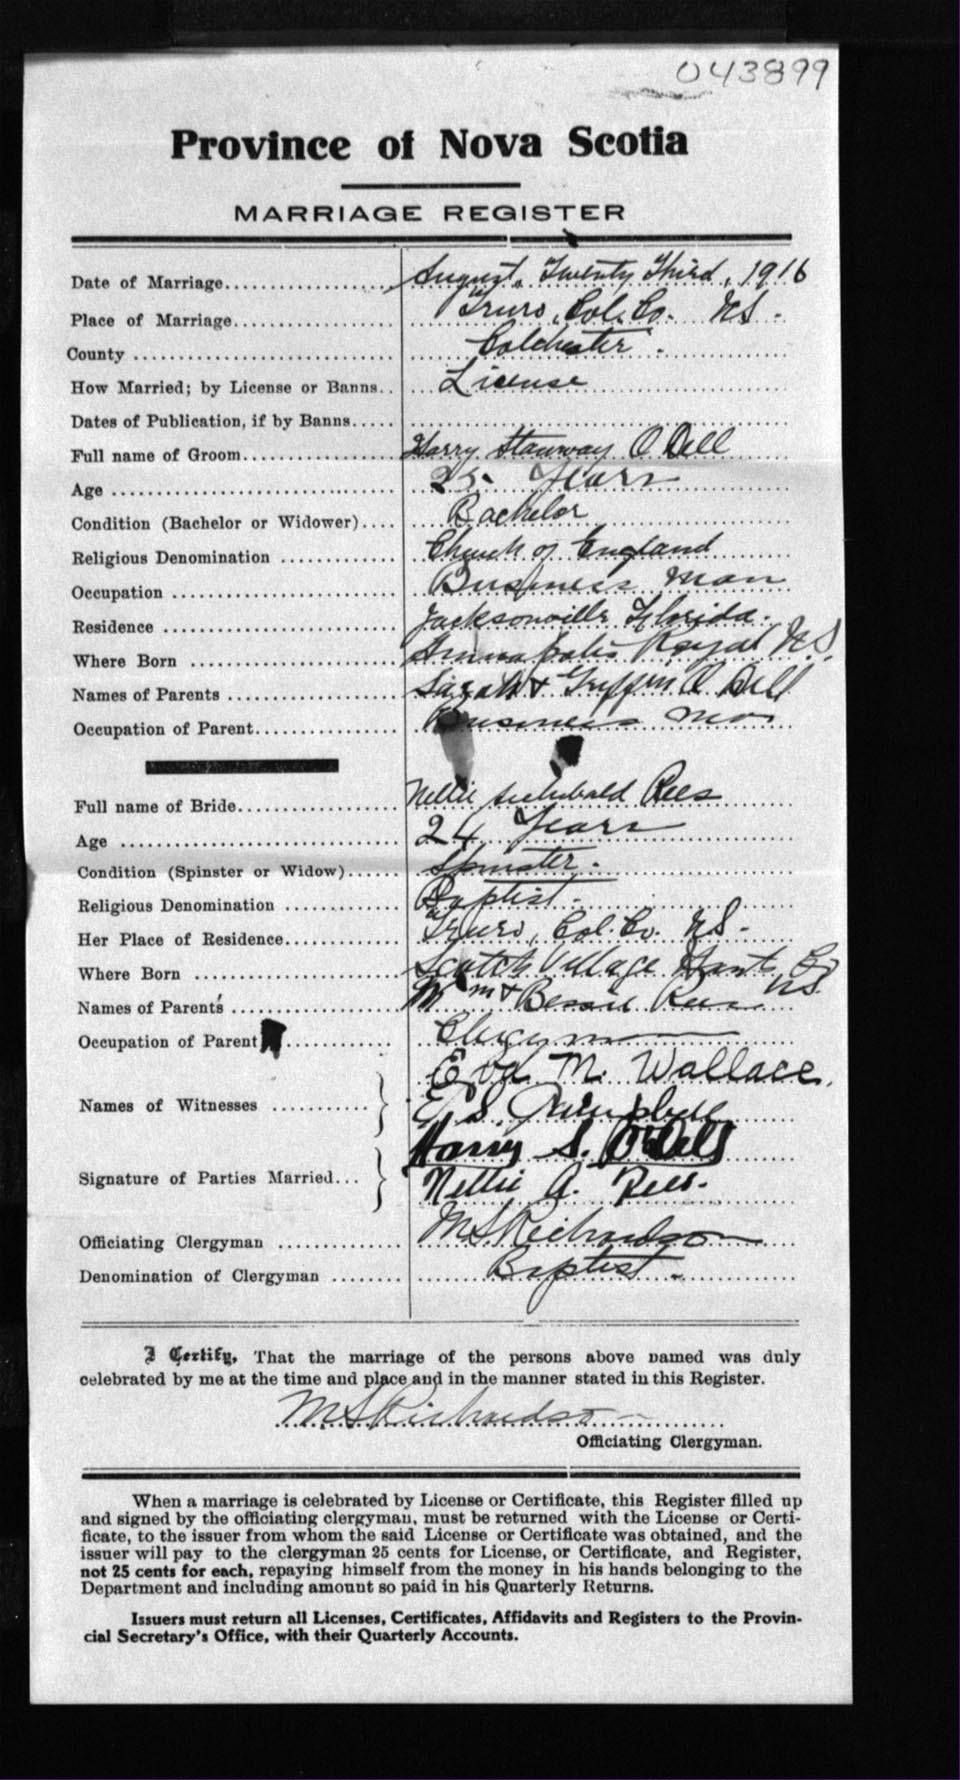 043899
Province of Nova Scotia
MARRIAGE REGISTER
Date of Marriage August, Twenty Third, 1916
Place of Marriage Truro, Col. Co. N.S.
County Colchester.
How Married; by License or Banns License
Dates of Publication, if by Banns
Full name of Groom Harry Stanway O Dell
Age 25. Years
Condition (Bachelor or Widower) Bachelor
Religious Denomination Church of England
Occupation Business Man
Residence Jacksonville Florida.
Where Born Annapolis Royal N.S.
Names of Parents Sarah & Griffin O Dell
Occupation of Parent Business Man
Full name of Bride Nellie Archibald Rees
Age 24 Years
Condition (Spinster or Widow) Spinster.
Religious Denomination Baptist.
Her Place of Residence Truro, Col. Co. N.S.
Where Born Scotch Village Hants Co N.S.
Names of Parents Wm & Bessie Rees
Occupation of Parent Clergyman
Names of Witnesses Eva M. Wallace.
E. S.
Signature of Parties Married Harry S. O'Dell
Nellie A. Rees.
Officiating Clergyman M S Richardson
Denomination of Clergyman Baptist.
I Certify, That the marriage of the persons above named was duly
celebrated by me at the time and place and in the manner stated in this Register.
M S Richardson
Officiating Clergyman.
When a marriage is celebrated by License or Certificate, this Register filled up
and signed by the officiating clergyman, must be returned with the License or Certi-
ficate, to the issuer from whom the said License or Certificate was obtained, and the
issuer will pay to the clergyman 25 cents for License, or Certificate, and Register,
not 25 cents for each, repaying himself from the money in his hands belonging to the
Department and including amount so paid in his Quarterly Returns.
Issuers must return all Licenses, Certificates, Affidavits and Registers to the Provin-
cial Secretary's Office, with their Quarterly Accounts.